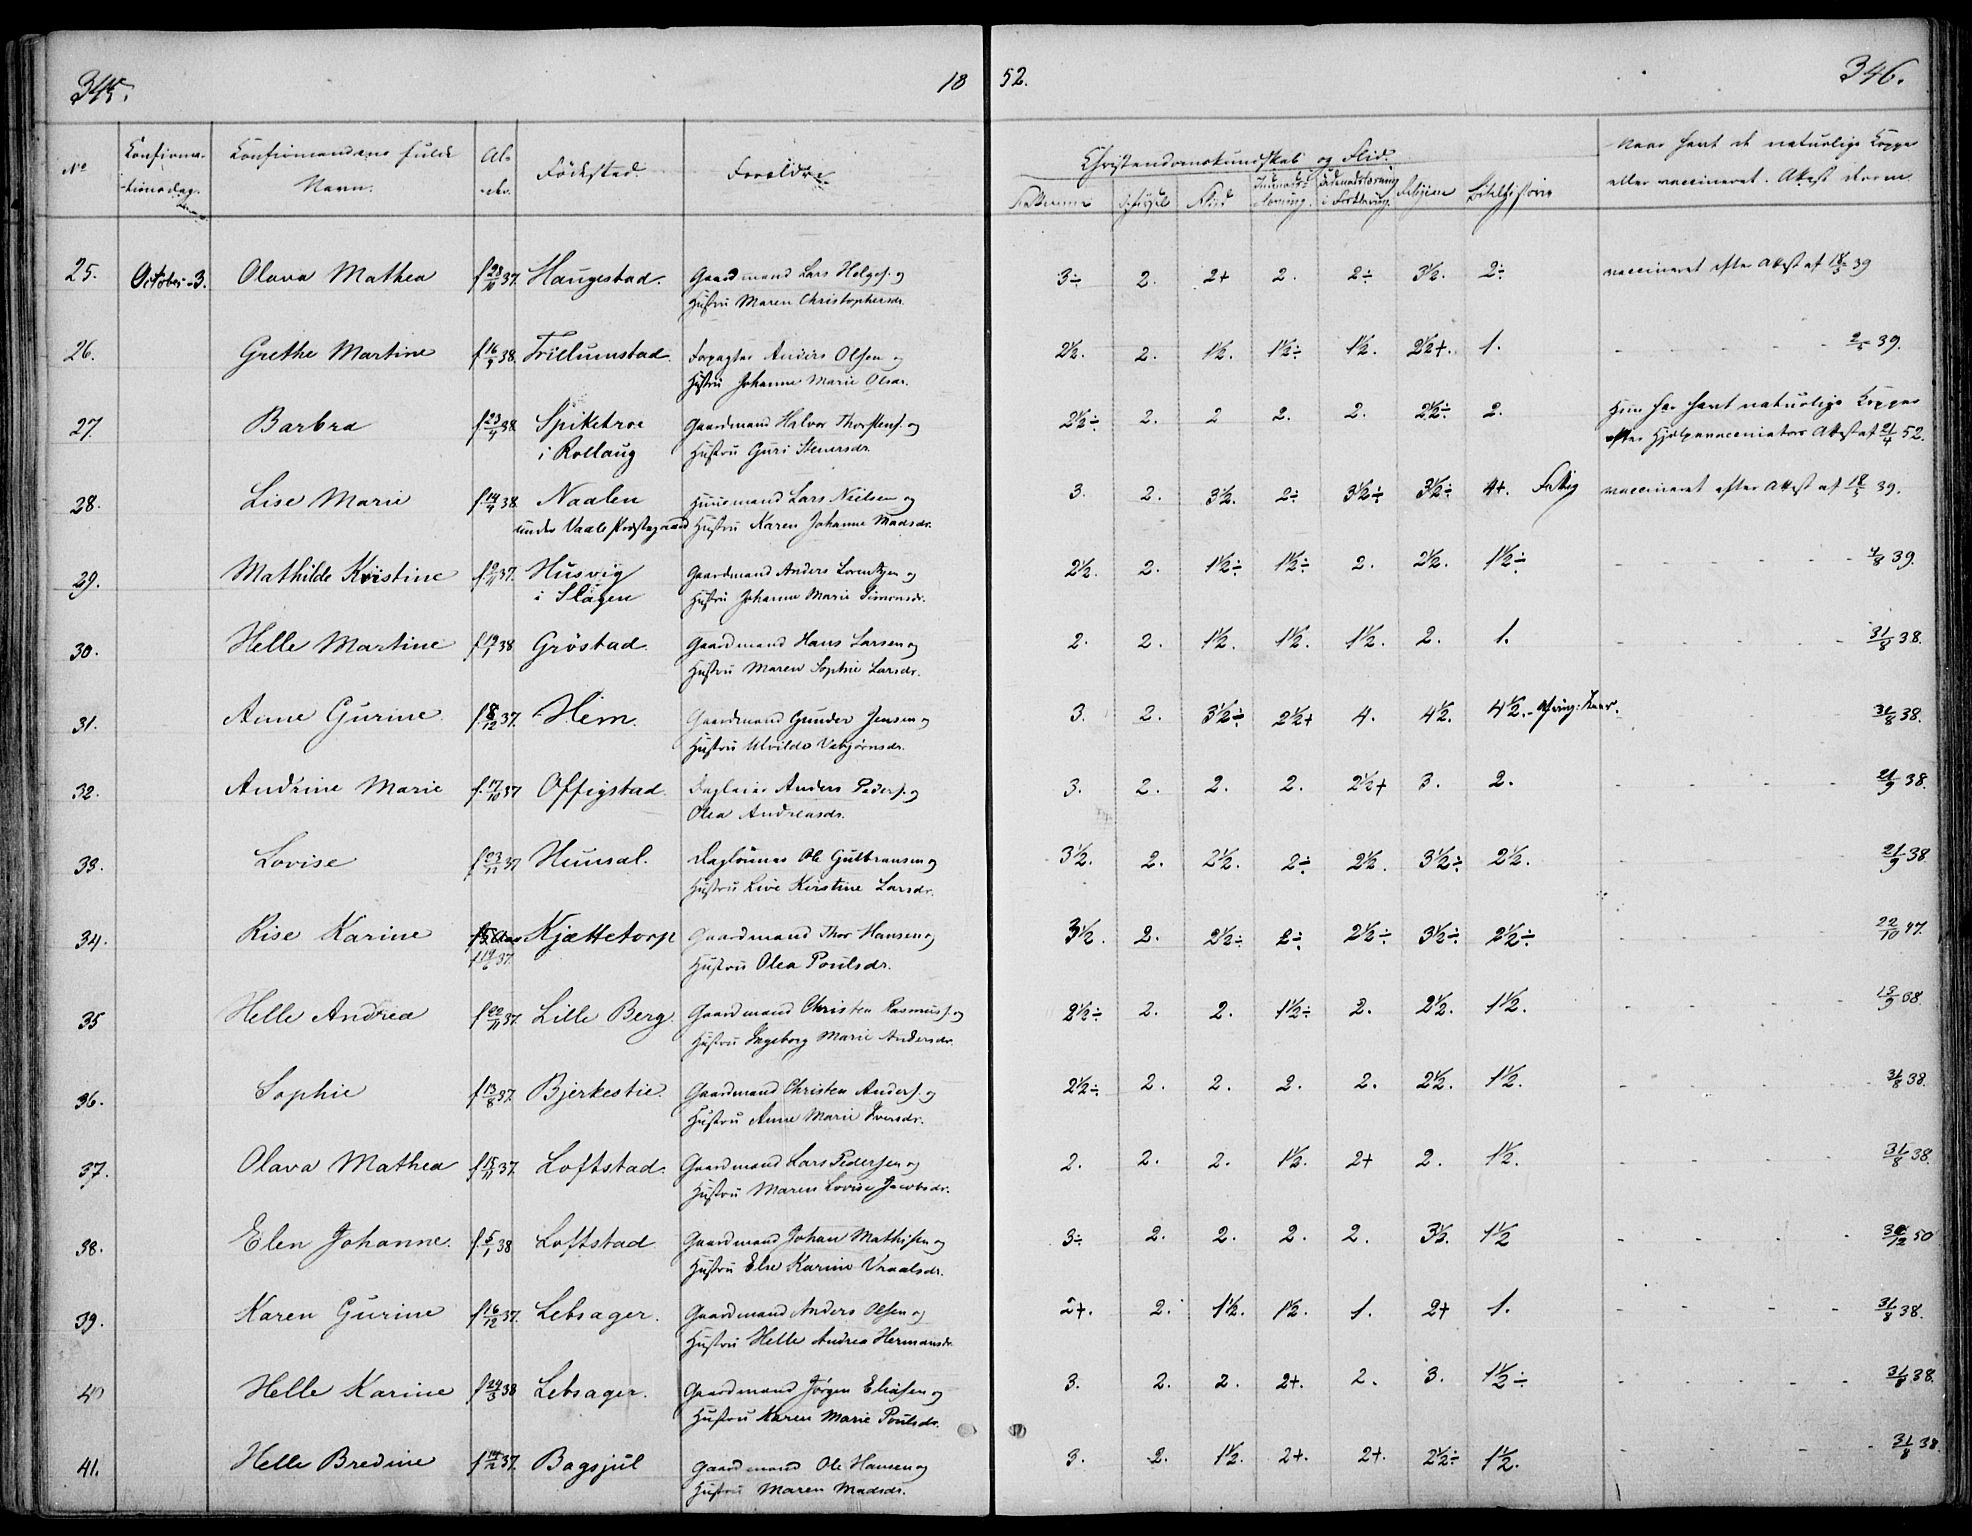 345.
18
52.
346.
No
Confirma-
tionsdag.
Confirmandens fulde
Navn.
Al-
der.
Födested.
Foreldre
Christendomskundskab og Flid.
Flid
Religion
Bibelhistorie
Naar havt de naturlige Kopper
eller vaccineret. Attest derom
25. October 3. Olava Mathea f 28/10 37. Haugestad. Gaardmand Lars Helges. og 3÷ 2. 2+ 2. 2÷ 3½. 2÷ vaccineret efter Attest af 18/5 39
Hustru Maren Christophersdr.
26. Grethe Martine f 16/3 38. Trillumstad. Forpagter Anders Olsen og 2½. 2. 1½. 1½÷ 1½. 2½+. 1. - 2/5 39.
Hustru Johanne Marie Olsdr.
27. Barbra f 23/4 38 Spiketroe Gaardmand Halvor Thorstens. og 2½÷ 2. 2 2. 2. 2½÷ 2. Hun har havt naturlige Kopper
i Rollaug Hustru Guri Steuersdr. efter Hjelpevaccinators Attest af 21/4 52.
28. Lise Marie f. 14/4 38 Naalen Huusmand Lars Nielsen og 3. 2. 3½. 2÷ 3½÷ 3½÷ 4+. Fattig vaccineret efter Attest af 18/5 39.
under Vaale Præstegaard Hustru Karen Johanne Madsdr.
29. Mathilde Kristine f 9/11 37. Husvig Gaardmand Anders Lorentzen og 2½. 2. 1½÷ 1½÷ 2. 2½. 1½÷ - 4/8 39.
i Slagen Hustru Johanne Marie Simonsdr.
30. Helle Martine f 19/1 38 Gröstad. Gaardmand Hans Larsen og 2. 2. 1½. 1½. 1½. 2. 1. - 31/8 38.
Hustru Maren Sophie Larsdr.
31. Anne Gurine f. 8/12 37. Hem. Gaardmand Gunder Jensen og 3. 2. 3½÷ 2½+ 4. 4½. 4½. - 31/8 38.
Hustru Ulvilde Vebjørnsdr.
32. Andrine Marie f. 17/10 37 Offigstad. Dagleier Anders Peders. og 3. 2. 2. 2. 2½+ 3. 2. - 21/9 38.
Olea Andreasdr.
33. Lovise f 23/11 37 Hunsal. Daglönner Ole Gulbransen og 3½. 2. 2½. 2÷ 2½. 3½÷ 2½. - 21/9 38
Hustru Live Kirstine Larsdr.
34. Rise Karine Kjættetorp Gaardmand Thor Hansen og 3½. 2. 2½÷ 2÷ 2½÷ 3½÷ 2½÷ - 22/10 47.
f 19/6 37. Hustru Olea Poulsdr.
35 Helle Andrea f 20/11 37. Lille Berg. Gaardmand Christen Rasmuss. og 2½÷ 2. 2. 1½÷ 2. 2½. 1½. - 13/9 38.
Hustru Ingeborg Marie Andersdr.
36. Sophie f 13/8 37. Bjerkestie. Gaardmand Christen Anders. og 2½÷ 2. 2. 2. 2. 2½. 1½. - 31/8 38.
Hustru Anne Marie Iversdr.
37. Olava Mathea f 15/11 37. Loftstad. Gaardmand Lars Pedersen og 2. 2. 2. 1½. 2+ 2. 1½. - 31/8 38.
Hustru Maren Lovise Jacobsdr.
38. Elen Johanne. f. 5/1 38 Loftstad Gaardmand Johan Mathisen og 3÷ 2. 2. 2. 2. 3½. 1½ - 30/12 50
Hustru Else Karine Vraalsdr.
39. Karen Gurine f 16/12 37. Lebsager. Gaardmand Anders Olsen og 2+. 2. 1½. 1½. 1. 2+ 1. - 31/8 38.
Hustru Helle Andrea Hermansdr
40 Helle Karine f 24/3 38 Lebsager. Gaardmand Jörgen Eliasen og 3. 2. 2. 2+. 2. 3. 1½÷ - 31/8 38.
Hustru Karen Marie Poulsdr.
41. Helle Bredine f 14/2 37. Bogsjul Gaardmand Ole Hansen og 3. 2. 1½. 2+. 2+. 2½÷ 1½. - 31/8 38
Hustru Maren Madsdr.